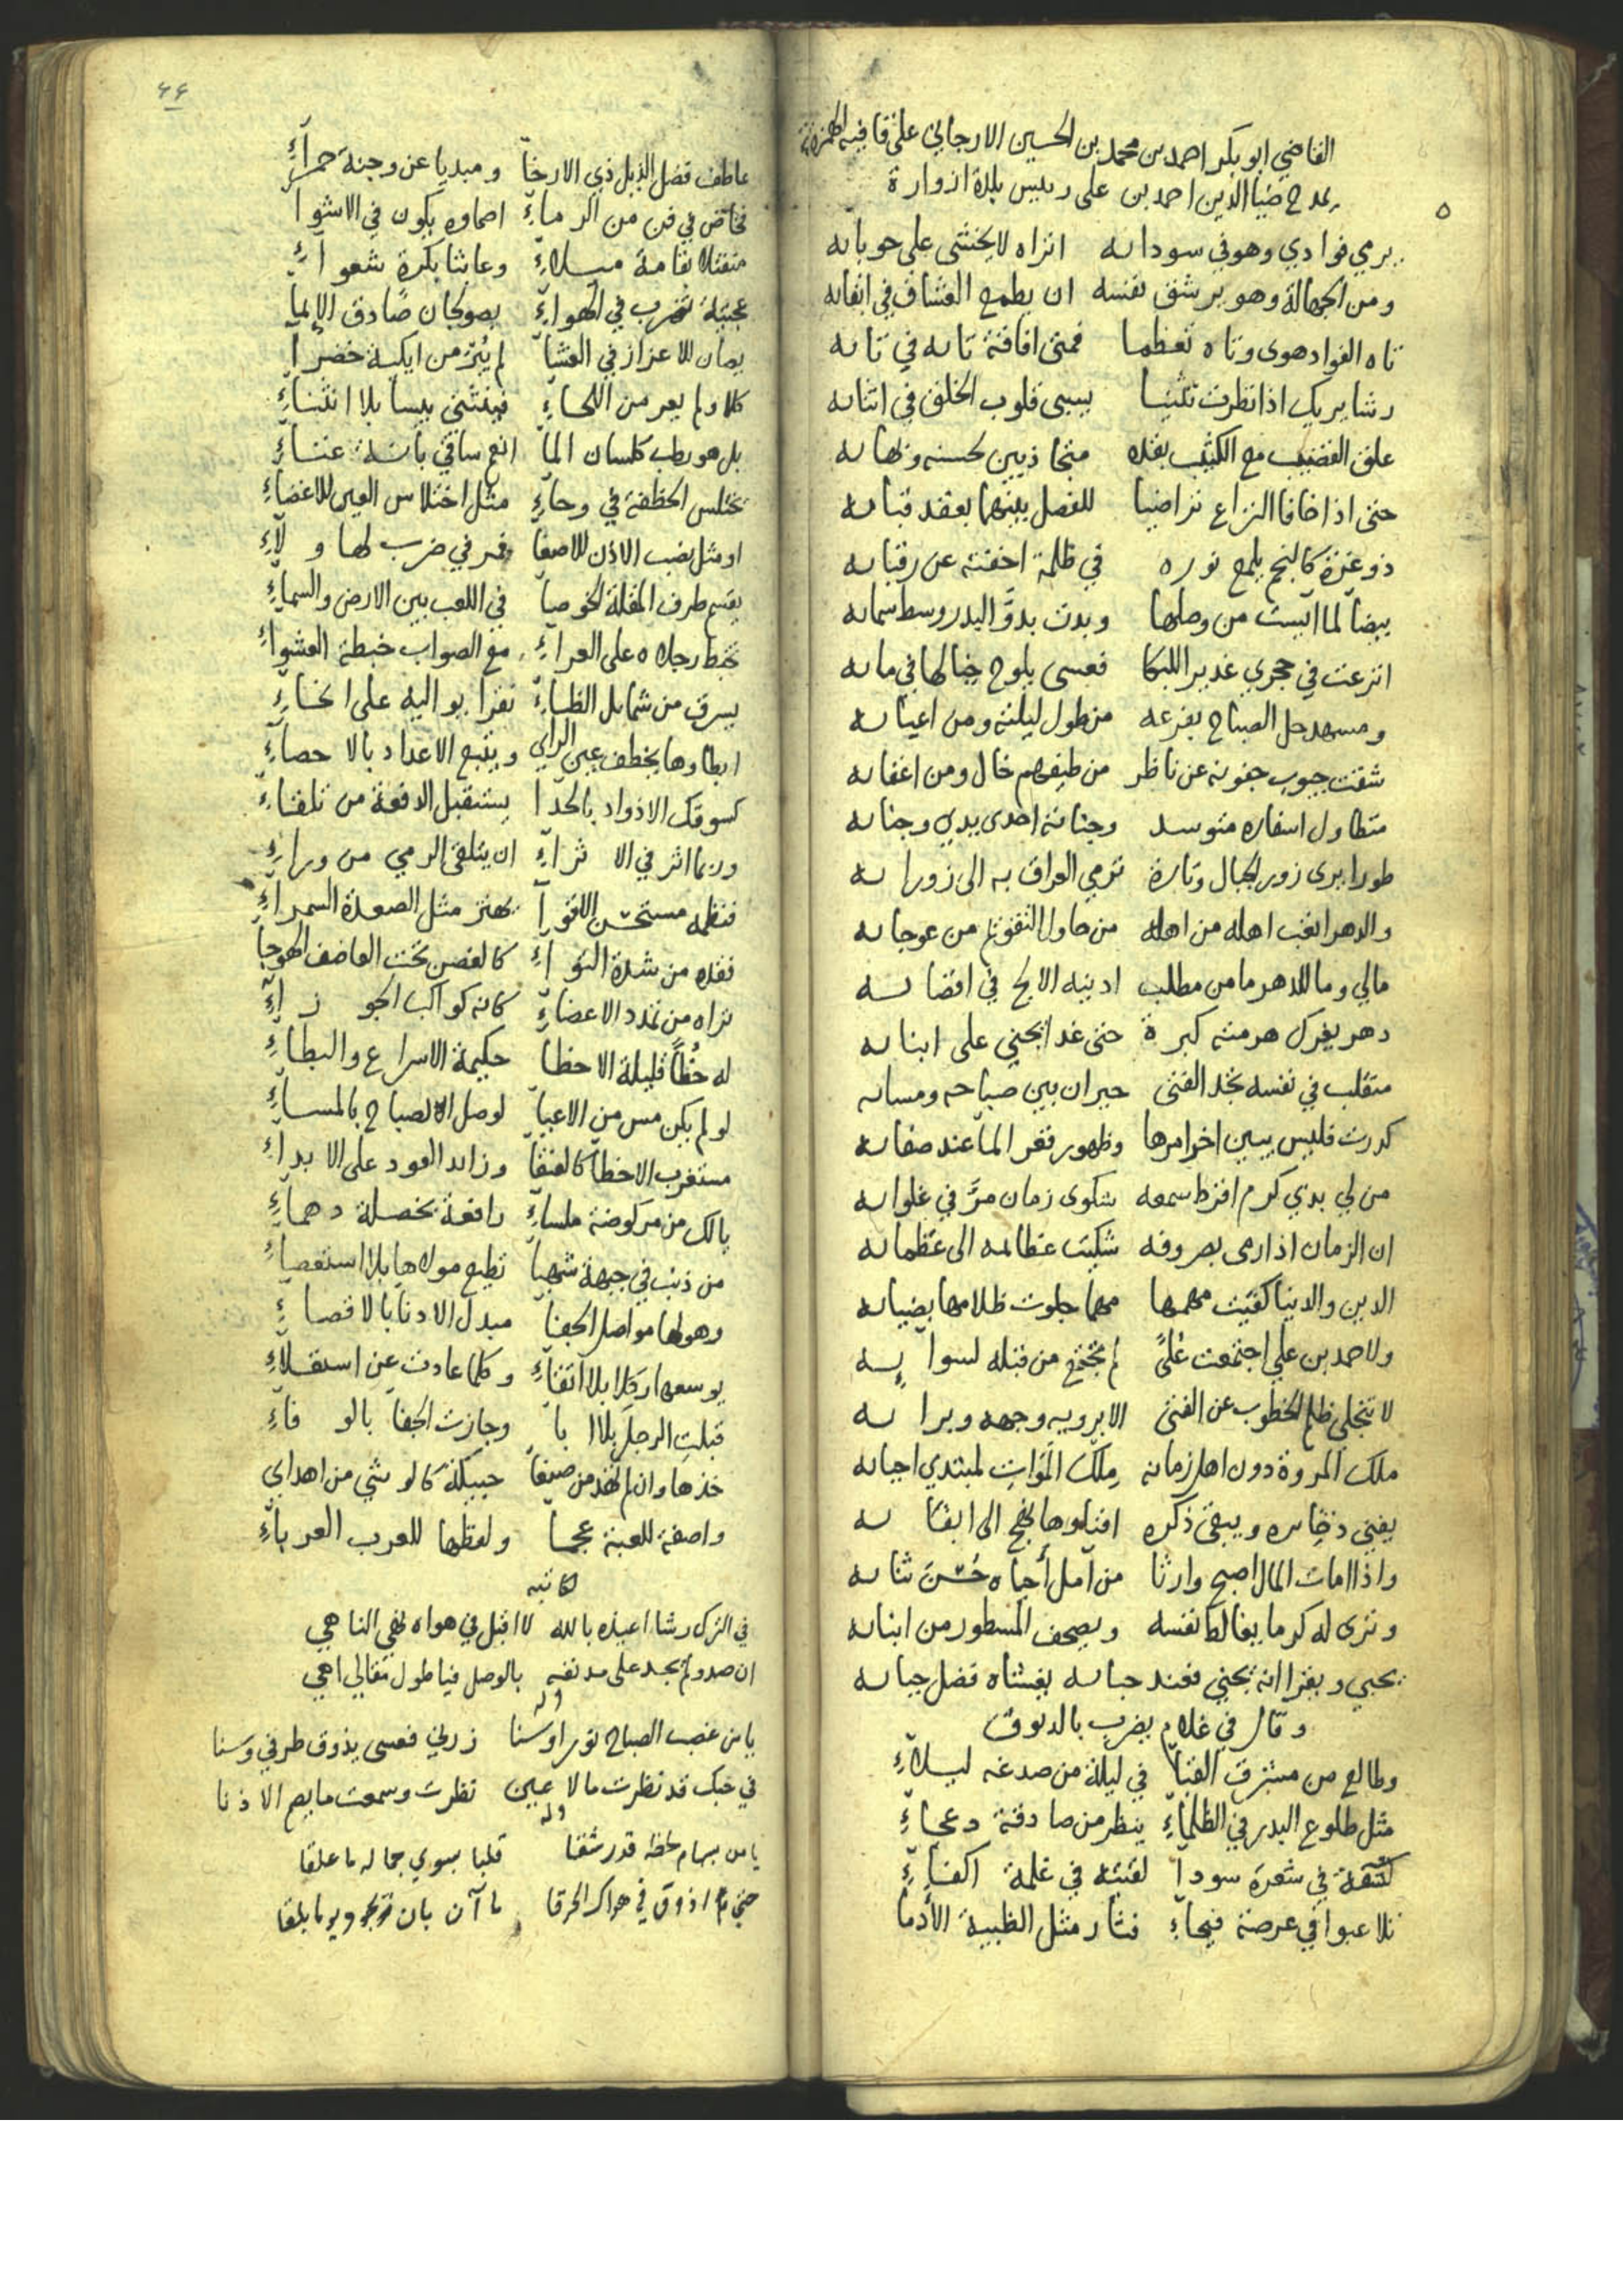 القاضي ابو بكر احمد بن محمد بن الحسين الارجاني على قافيه الهمزة
يمدح ضيا الدين احمد بن على رييس بلدة ازوارة
يرمي فوادي وهو في سودايه اتراه لا يخشى على حوبايه
ومن الجهالة وهو يرشق نفسه ان يطمع العشاق في ابقايه
تاه الفواد هوى وتاه تعظما فمتى افاقة تايه في تايه
رشا يريك اذا نظرت تثنيا يسبى قلوب الخلق في اثنايه
علق القضيب مع الكثيب بقده متجاذبين لحسنه وبهايه
حتى اذا خافا النزاع تراضيا للفصل بينهما بعقد قبايه
ذو غرة كالنجم يلمع نوره في ظلمة اخفته عن رقبايه
بيضا لما آيست من وصلها وبدت بدو البدر وسط سمايه
اترعت في حجري غدير اللبكا فعسى يلوح خيالها في مايه
ومسهد حل الصباح بفرعه من طول ليلته ومن اعيايه
شقت جيوب جفونه عن ناظر من طيفهم خال ومن اغفايه
متطاول اسفاره متوسد وجنائه احدى يدي وجنايه
طورا يرى زور الجبال وتارة ترمي العراق به الى زورايه
والدهر اتعب اهله من اهله من حاول التقويم من عوجايه
مالي وما للدهر ما من مطلب ادنيه الا لج في اقصايه
دهر يغرك هرمته كبرة حتى غدا يجني على ابنايه
متقلب في نفسه تجد الفتى حيران بين صباحه ومسايه
كدرت فليس يبين اخر امرها وظهور قعر الما عند صفايه
من لي بذي كرم اقرط سمعه شكوى زمان مر في غلوايه
ان الزمان اذا رمى بصروفه شكيت عظايمه الى عظمايه
الدين والدنيا كفيت مهمها مهما جلوت ظلامها بضيايه
ولاحمد بن علي اجتمعت علىً لم تجتمع من قبله لسوايه
لا تنجلي ظلم الخطوب عن الفتى الا برويه وجهه وبرايه
ملك المروة دون اهل زمانه ملك الموات لمبتدي احيايه
يفنى ذخايره ويبقى ذكره افنا وها نهج الى ابقايه
واذا امات المال اصبح وارثا من آمل أحياه حُسنَ ثنايه
وترى له كرما يغالط نفسه ويصحف المسطور من ابنايه
يحبي ويقرا انه يجني فعند حبايه يغشاه فضل حيايه
وقال في غلام يضرب بالدبوق
وطالع من مشرق القبآ في ليلة من صدغه ليلآءِ
مثل طلوع البدر في الظلمآءِ ينظر من صادقة دعجآءِ
في شعرة سودآ لقبته في غلمة اكفآءِ
تلاعبوا في عرصة فيحآءِ فثار مثل الظبية الأدمآ
٤٤
عاطف فضل الذيل ذي الارخآ ومبديا عن وجنة حمرآءِ
فخاض في فن من اكرمآءِ اصماوه يكون في الاشوا
منفتلا بقامة ميلآءِ وعابثا بكرة شعوآءِ
عجيبة تضرب في الهوآءِ بصولجان صادق الإيمآ
يصان للاعزاز في الغشآ لم يُبرَ من ايكة خضرآ
كلا ولم يعر من اللحآءِ فينثني يبسا بلا انثنآءِ
بل هو رطب كلسان المآ انبع ساقي بانة غنآءِ
تختلس الخطفة في وحآءِ مثل اختلاس العين للاغضآءِ
او مثل نصب الاذن للاصغآ وفر في ضرب لها ولآءِ
يقسم طرف المقلة الخوصآ في اللعب بين الارض والسمآءِ
تخبط رجلاه على العرآءِ مع الصواب خبطة العشوآءِ
يسرق من شمايل الظبآءِ نقرا يواليه على انحنآءِ
ابطاوها يخطف عين الراي ويتبع الاعداد بالاحصآءِ
كسوقك الاذواد بالحدآ يستقبل الدفعة من تلقآءِ
وربما اثر في الاثرآءِ ان يتلقى الرمي من ورآءِ
فنظمه مستحسن الاقوآ يهتز مثل الصعدة السمرآءِ
فقده من شدة التوآءِ كالغصن تحت العاصف الهوجآ
تراه من تمدد الاعضآءِ كانه كواكب الجوزآءِ
له خُطاً قليلة الاخطآ حكيمة الاسراع والبطآءِ
لو لم يكن مس من الاعيآ لوصل الاصباح بالمسآءِ
مستغرب الاخطآ كالعنقآ وزايد العود على الابدآءِ
يالك من مركوضة ملسآءِ رافعة بخصلة دهمآءِ
من ذنب في جبهة شهبآ تطيع مولاها بلا استعصآءِ
وهو لها مواصل الجفآ مبدل الادنا بالاقصآءِ
يوسعها ركلا بلا اتقآءِ وكلما عادت عن استعلآءِ
قبلت الرجل بلا ابآ وجازت الجفآ بالوفآءِ
خذها وان لم تهد من صنعآ حبيكة كالوشي من اهداي
واصفة للعبة عجمآ ولفظها للعرب العربآءِ
لكاتبه
في الترك رشا اعيذه بالله لا اقبل في هواه نهي الناهي
ان صد ولم يجد على مدنفه بالوصل فيا طول تغالي اهي
وله
يا من غصب الصباح نورا وسنا زرني فعسى يذوق طرفي وسنا
في حبك قد نظرت ما لا عين نظرت وسمعت ما يصم الاذنا
وله
يا من بسهام لحظه قد رشقا قلبا بسوي جماله ما علقا
حتي م اذوق في هواك الحرقا ما آن بان